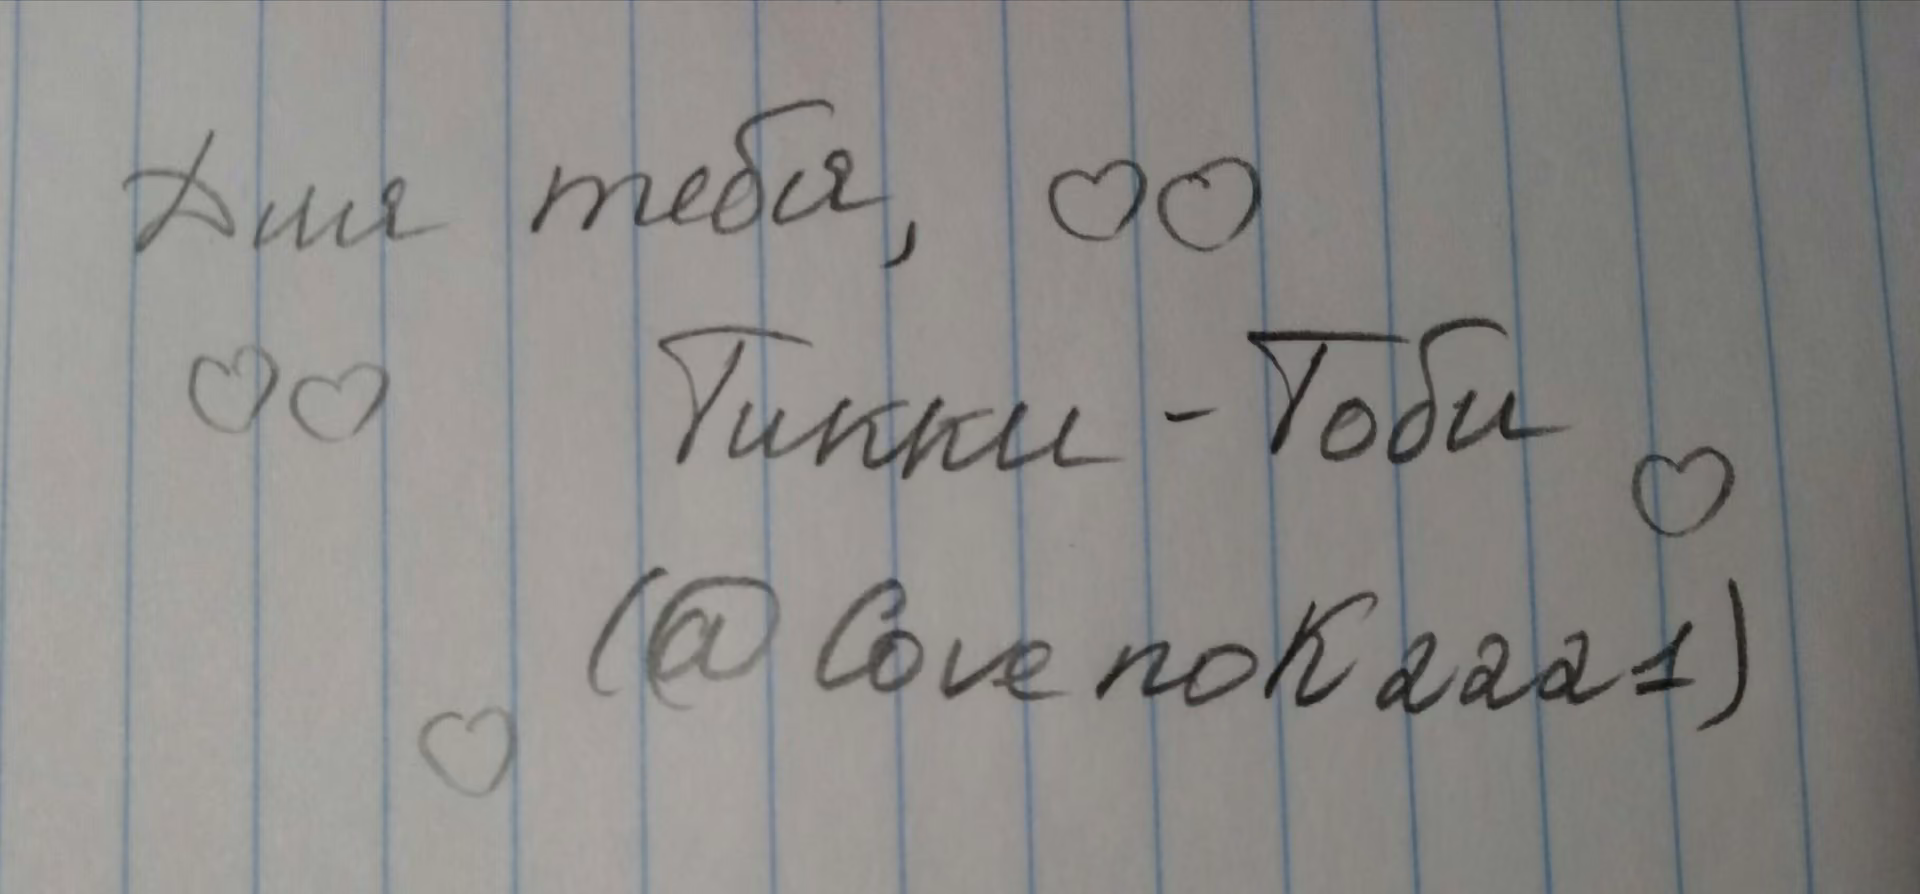 Для тебя,
Тикки-Тоби
(@CovenoK2221)